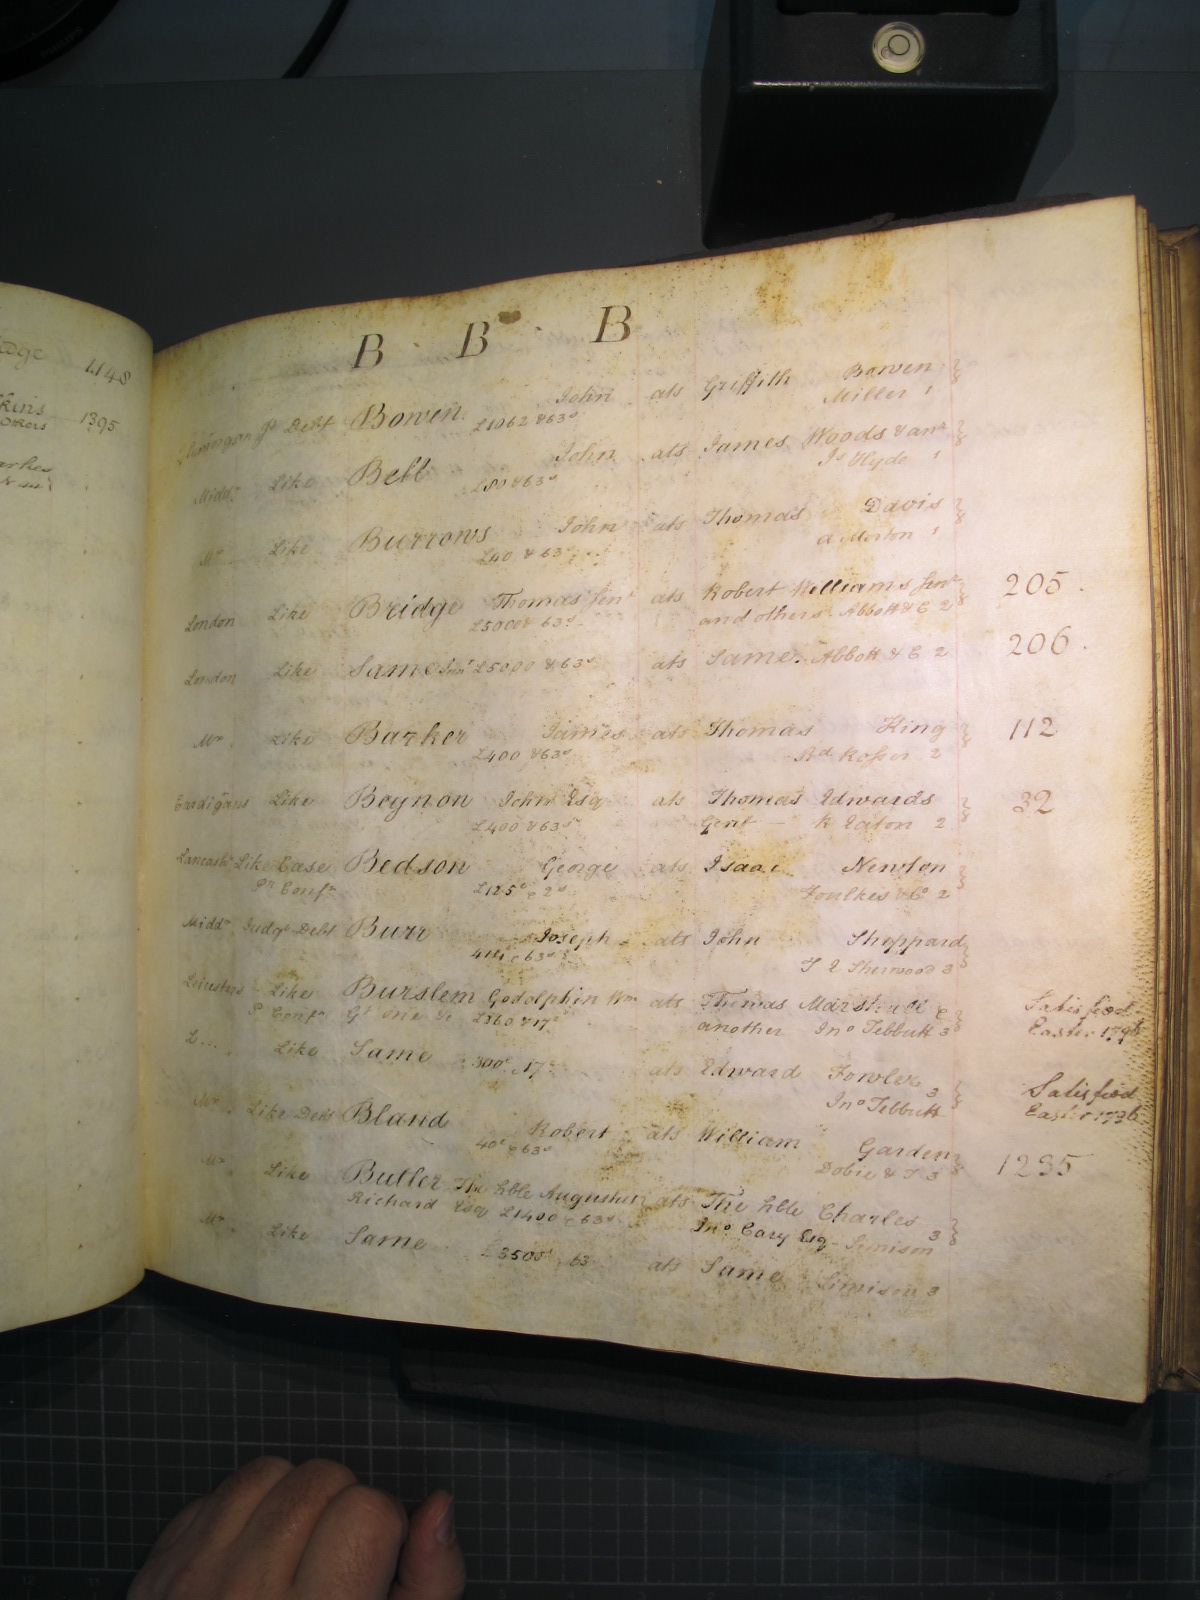 1148
1395
B B B
Glamorgan Jt Debt Bowen John ats Griffith Bowen
£1062 & 63s Miller 1
Middx Like Bell John ats James Woods & anr
£80 & 63s Js Hyde 1
Mx Like Burrows John ats Thomas Davis
£40 & 63s a Morton 1
London Like Bridge Thomas Senr ats Robert Williams Senr 205
£5000 & 63s and others Abbott & C 2
London Like Same Senr £5000 & 63s ats Same. Abbott & C 2 206
Mx Like Barker James ats Thomas King 112
£400 & 63s Rd Rosser 2
Cardigans Like Beynon John Esq ats Thomas Edwards 32
£400 & 63s Gent R Eaton 2
Lancashr Like Case Bedson George ats Isaac Newton
Pr Confn £125 2s Foulkes & Co 2
Middx Judgt Debt Burr Joseph ats John Sheppard
63s T L Sherwood 3
Leicesters Like Burslem Godolphin Wm ats Thomas Marshall & Satisfied
P Confn Gt one &c £360 & 17s another Jno Tebbutt 3 Easter 1796
L... Like Same 300 17s ats Edward Fowler 3 Satisfied
Jno Tebbutt Easter 1796
Mx Like Debt Bland Robert ats William Garden 1235
40 63s Dobie & T 3
Mx Like Butler The hble Augustus ats The hble Charles
Richard Esq £1400 63s Jno Cary Esq Simison 3
Mx Like Same £3500 63 ats Same Simison 3